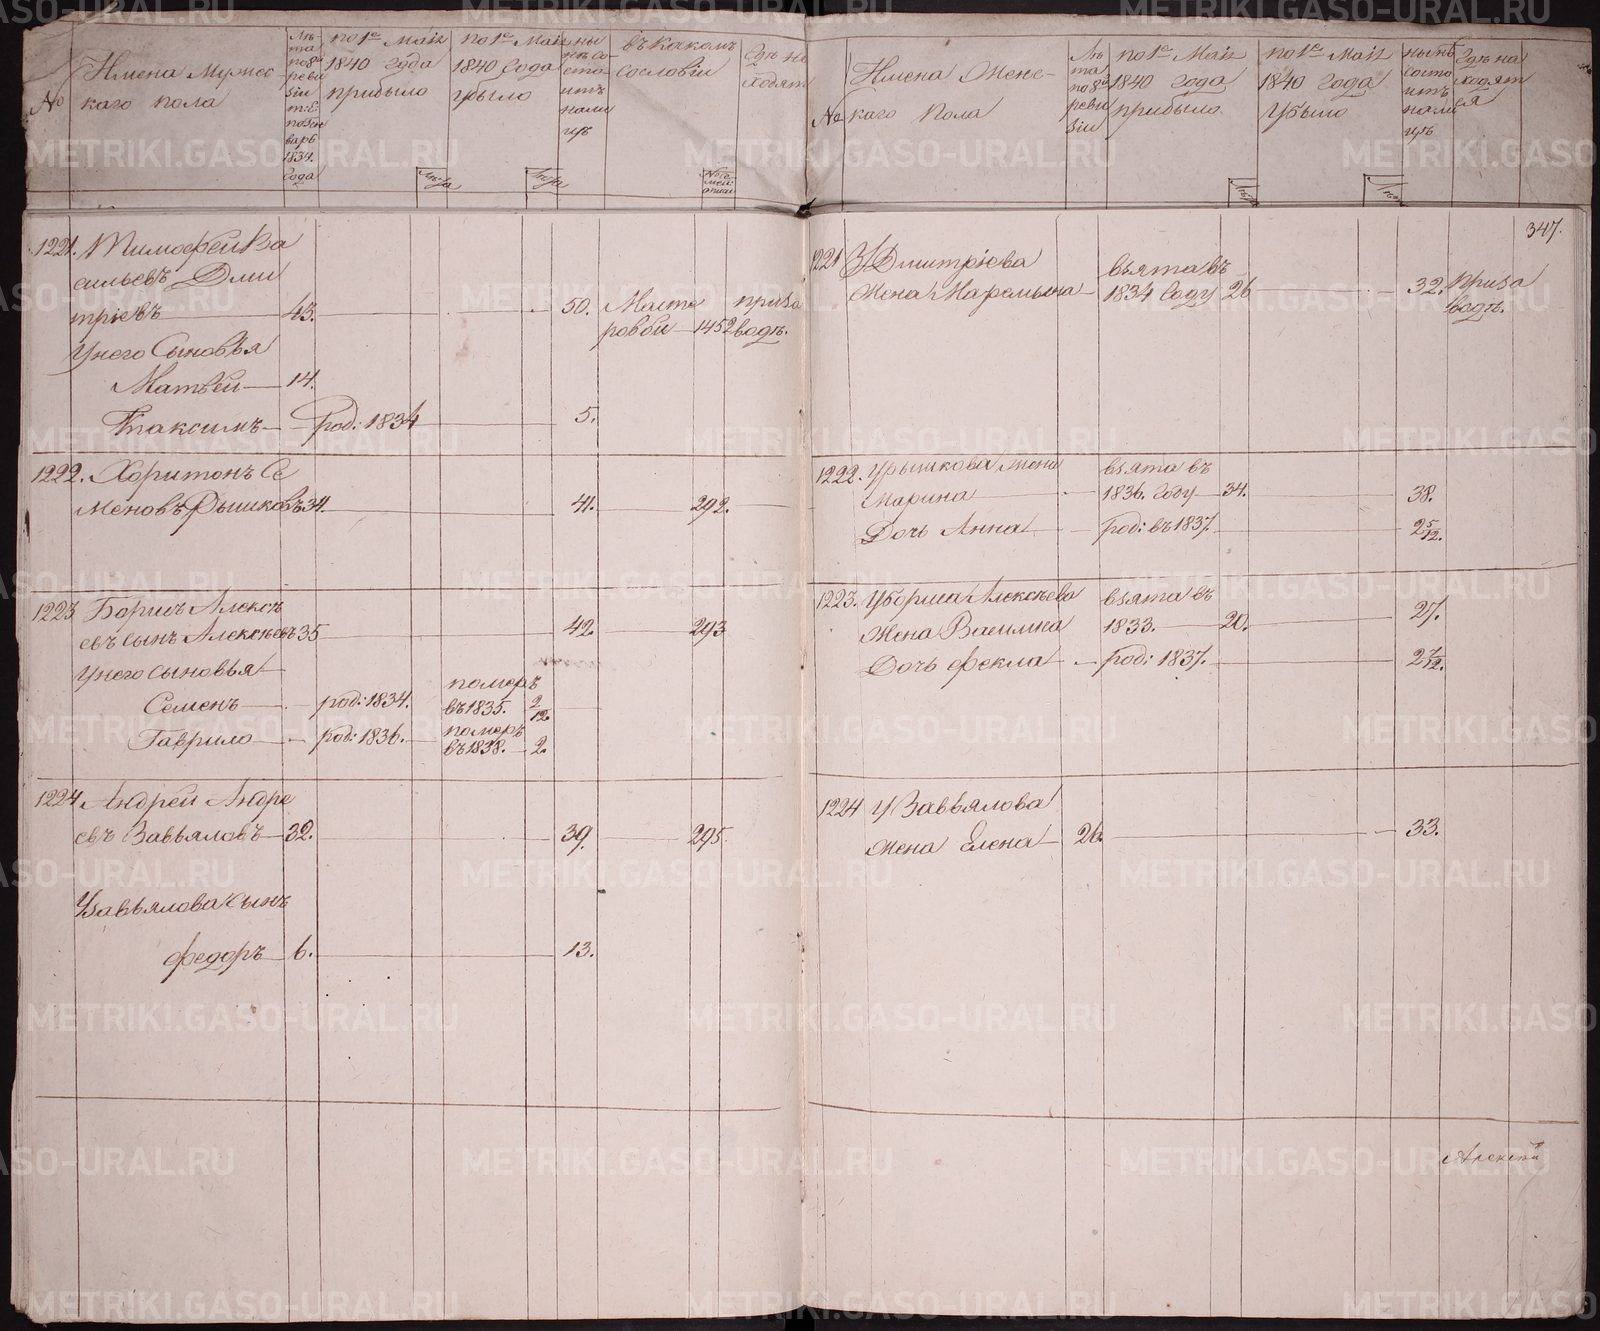 №
Имена мужес
каго пола
Лѣ-
та
по 8й
реви
зіи
т: Е:
по Ген
варь
1834.
Года
по 1е Маія
1840 года
прибыло
Лѣта
по 1е Маія
1840 Года
убыло
Лѣта
ны
нѣ со
сто-
итъ
нали
цъ
въ какомъ
сословіи
№ се
мей:
списк
Гдѣ на
ходят
1221. Тимофей Ва
сильевъ Дми
тріевъ 43. 50. Масте при за
ровой 1452 водѣ.
У него Сыновья
Матвей 14.
Максимъ род: 1834 5.
1222. Харитонъ Се
меновъ Рышковъ 34. 41. 292.
1223 Борисъ Алексѣ
евъ сынъ Алексѣевъ 35 42. 293
У него сыновья
Семенъ род: 1834. померъ
въ 1835. 2/12.
Гаврило род: 1836. померъ
въ 1838. 2.
1224 Андрей Андре
евъ Завьяловъ 32. 39. 295
У Завьялова сынъ
Федоръ 6. 13.
№
Имена Женс-
каго пола
Лѣ
та
по 8й
реви
зіи
по 1е Маія
1840 года
прибыло
Лѣта
по 1е Маія
1840 года
Убыло
Лѣта
нынѣ
состо
итъ
нали
цъ
Гдѣ на
ходят
ся
347.
1221 У Дмитріева взята въ
жена Маремьяна 1834 Году 26 32. При за
водѣ.
1222. У Рышкова жена взята въ
Марина 1836. году 34. 38.
Дочь Анна род: въ 1837. 2 5/12.
1223. У Бориса Алексѣева взята въ
жена Василиса 1833. 20. 27.
Дочь Фекла род: 1837. 2 7/12.
1224 У Завьялова
жена Елена 26. 33.
METRIKI.GASO-URAL.RU